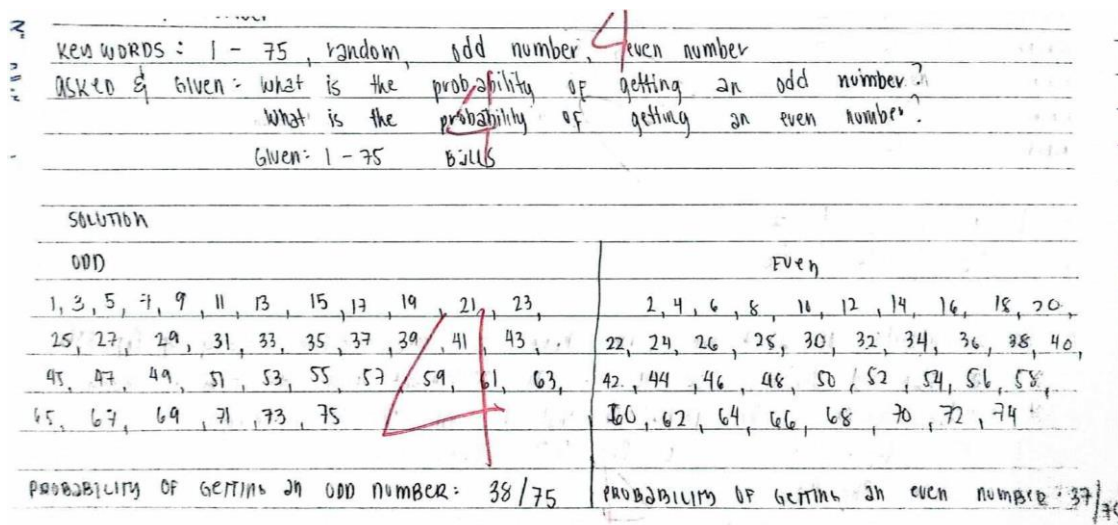 KEY WORDS : 1 - 75, random, odd number, even number
4
asked & Given : what is the probability of getting an odd number?
what is the probability of getting an even number?
4
Given: 1 - 75 Balls
SOLUTION
ODD
1, 3, 5, 7, 9, 11, 13, 15, 17, 19, 21, 23,
25, 27, 29, 31, 33, 35, 37, 39, 41, 43,
45, 47, 49, 51, 53, 55, 57, 59, 61, 63,
65, 67, 69, 71, 73, 75
4
PROBABILITY OF GETTING an ODD NUMBER: 38/75
Even
2, 4, 6, 8, 10, 12, 14, 16, 18, 20,
22, 24, 26, 28, 30, 32, 34, 36, 38, 40,
42, 44, 46, 48, 50, 52, 54, 56, 58,
60, 62, 64, 66, 68, 70, 72, 74
PROBABILITY OF GETTING an even number: 37/75